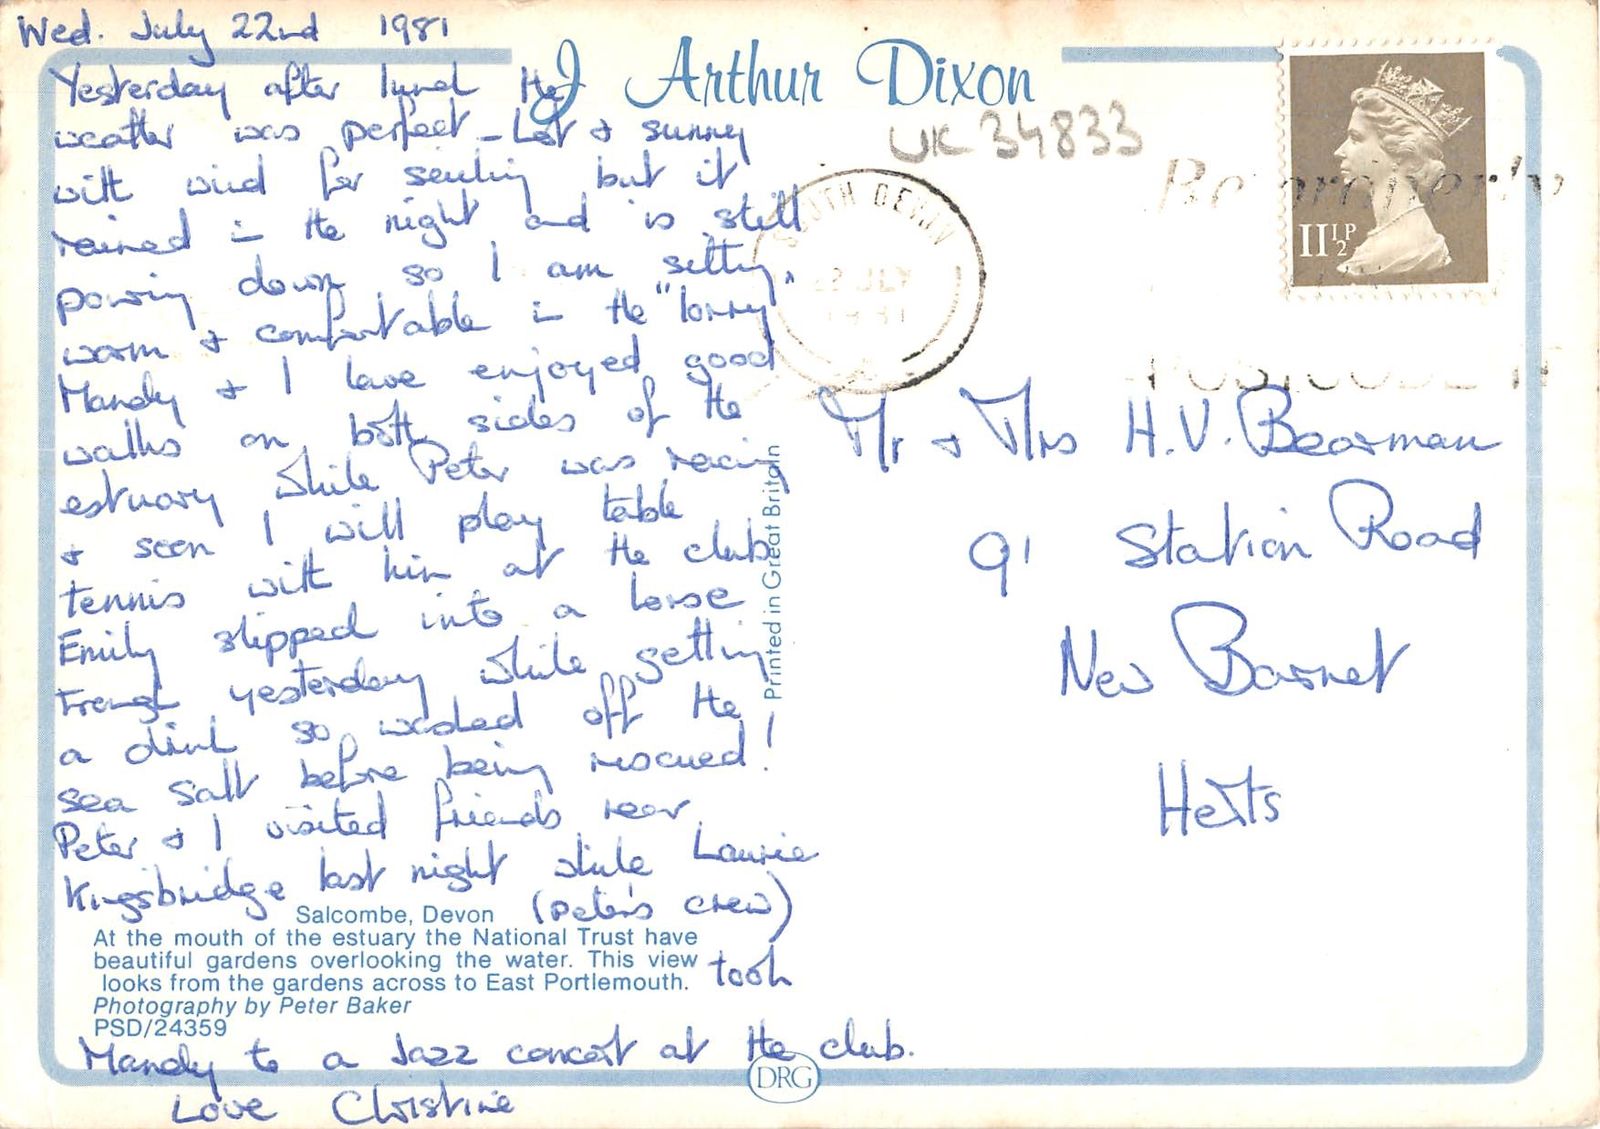 Wed. July 22nd 1981
Yesterday after lunch the
weather was perfect - hot & sunny
with wind for sailing but it
rained in the night and is still
pouring down so I am sitting,
warm & comfortable in the "lorry"
Mandy & I have enjoyed good
walks on both sides of the
estuary while Peter was racing
& soon I will play table
tennis with him at the club
Emily slipped into a horse
trough yesterday while getting
a drink so washed off the
sea salt before being rescued!
Peter & I visited friends near
Kingsbridge last night while Laurie
(Peter's crew)
took
Mandy to a Jazz concert at the club.
Love Christine
Salcombe, Devon
At the mouth of the estuary the National Trust have
beautiful gardens overlooking the water. This view
looks from the gardens across to East Portlemouth.
Photography by Peter Baker
PSD/24359
J Arthur Dixon
UK 34833
Printed in Great Britain
SOUTH DEVON
22 JLY
1981
Be properly
POSTCODE IT
11½P
Mr & Mrs H.V. Bearman
91 Station Road
New Barnet
Herts
DRG